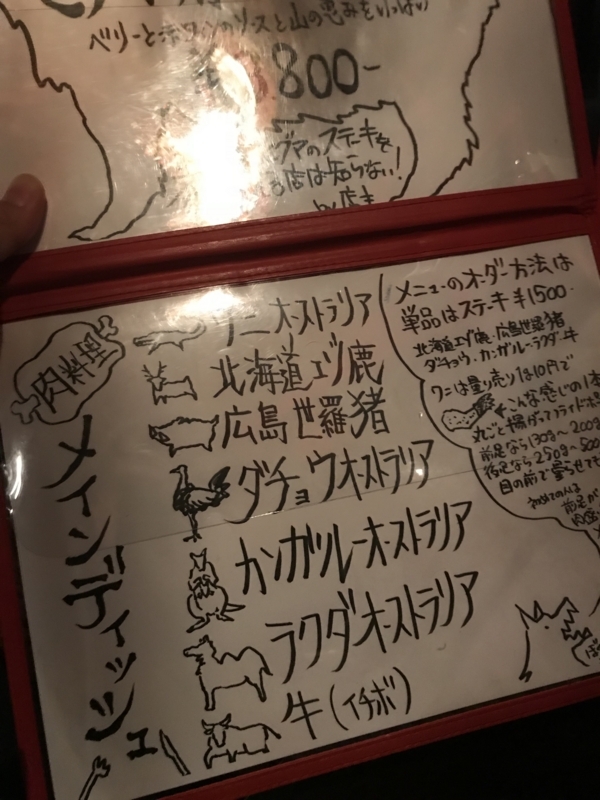 ベリーと
ソースと山の恵みをいっぱい
800-
グマのステーキを
店は知らない!
肉料理
メインディッシュ
ワニ オーストラリア
北海道エゾ鹿
広島世羅猪
ダチョウオーストラリア
カンガルーオーストラリア
ラクダオーストラリア
牛(イチボ)
メニューのオーダー方法は
単品はステーキ¥1500-
北海道エゾ鹿・広島世羅猪
ダチョウ・カンガルー・ラクダ・牛
ワニは量り売り1g10円で
こんな感じの1本
丸ごと揚がってフライド
前足なら130g~200g
後足なら250g~500
目の前で量らせても
初めての人は
前足が